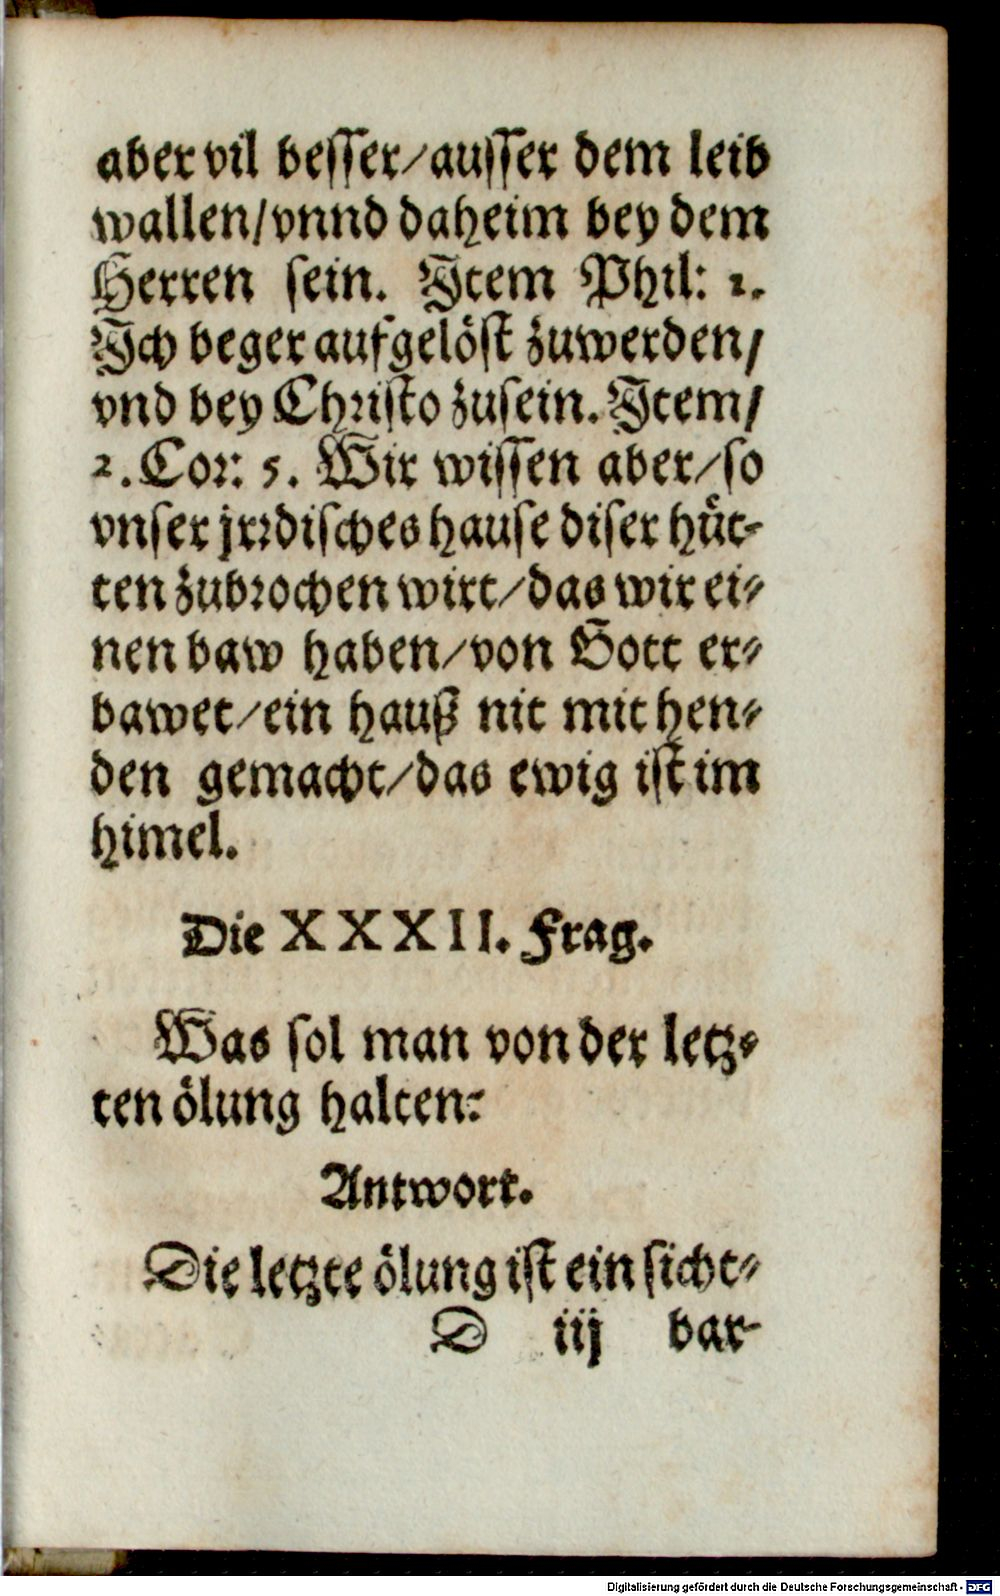 aber vil besser/ausser dem leib
wallen/vnnd daheim bey dem
Herren sein. Item Phil: 1.
Ich beger aufgelöst zuwerden/
vnd bey Christo zusein. Item/
2. Cor: 5. Wir wissen aber/so
vnser jrrdisches hause diser hüt-
ten zubrochen wirt/das wir ei-
nen baw haben/von Gott er-
bawet/ein hauß nit mit hen-
den gemacht/das ewig ist im
himel.
Die XXXII. Frag.
Was sol man von der letz-
ten ölung halten?
Antwort.
Die letzte ölung ist ein sicht-
D iij bar-
Digitalisierung gefördert durch die Deutsche Forschungsgemeinschaft - DFG